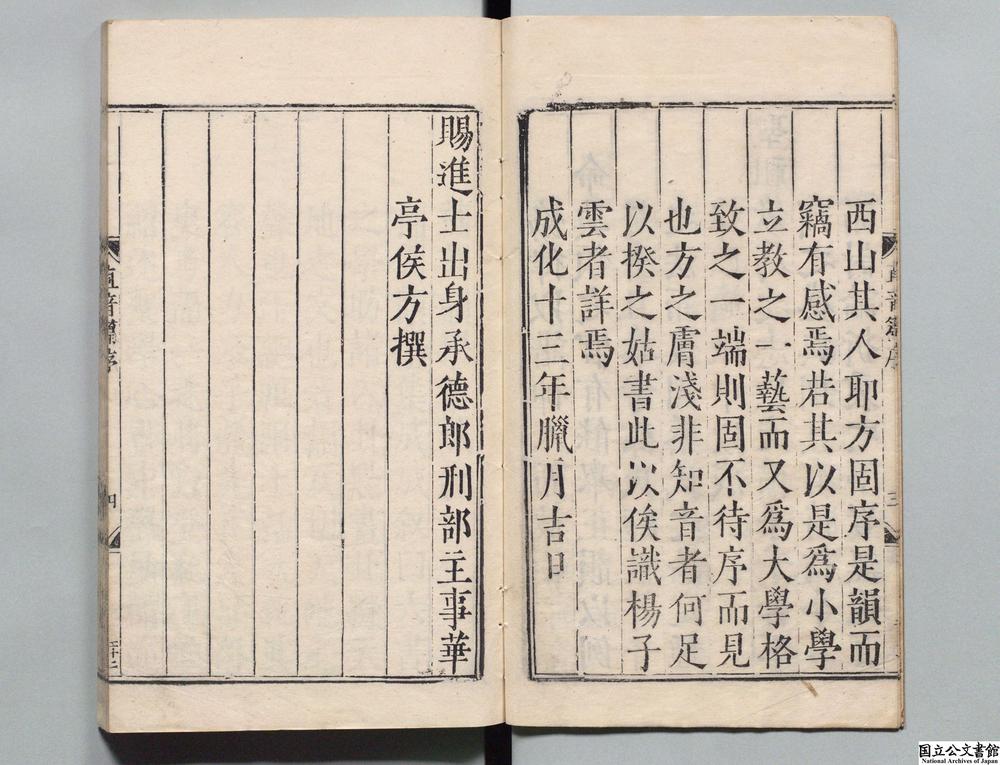 西山其人耶方固序是韻而
竊有感焉若其以是爲小學
立教之一藝而又爲大學格
致之一端則固不待序而見
也方之膚淺非知音者何足
以揆之姑書此以俟識楊子
雲者詳焉
成化十三年臘月吉日
直音篇序
三
賜進士出身承德郎刑部主事華
亭侯方撰
直音篇序
四
国立公文書館
National Archives of Japan